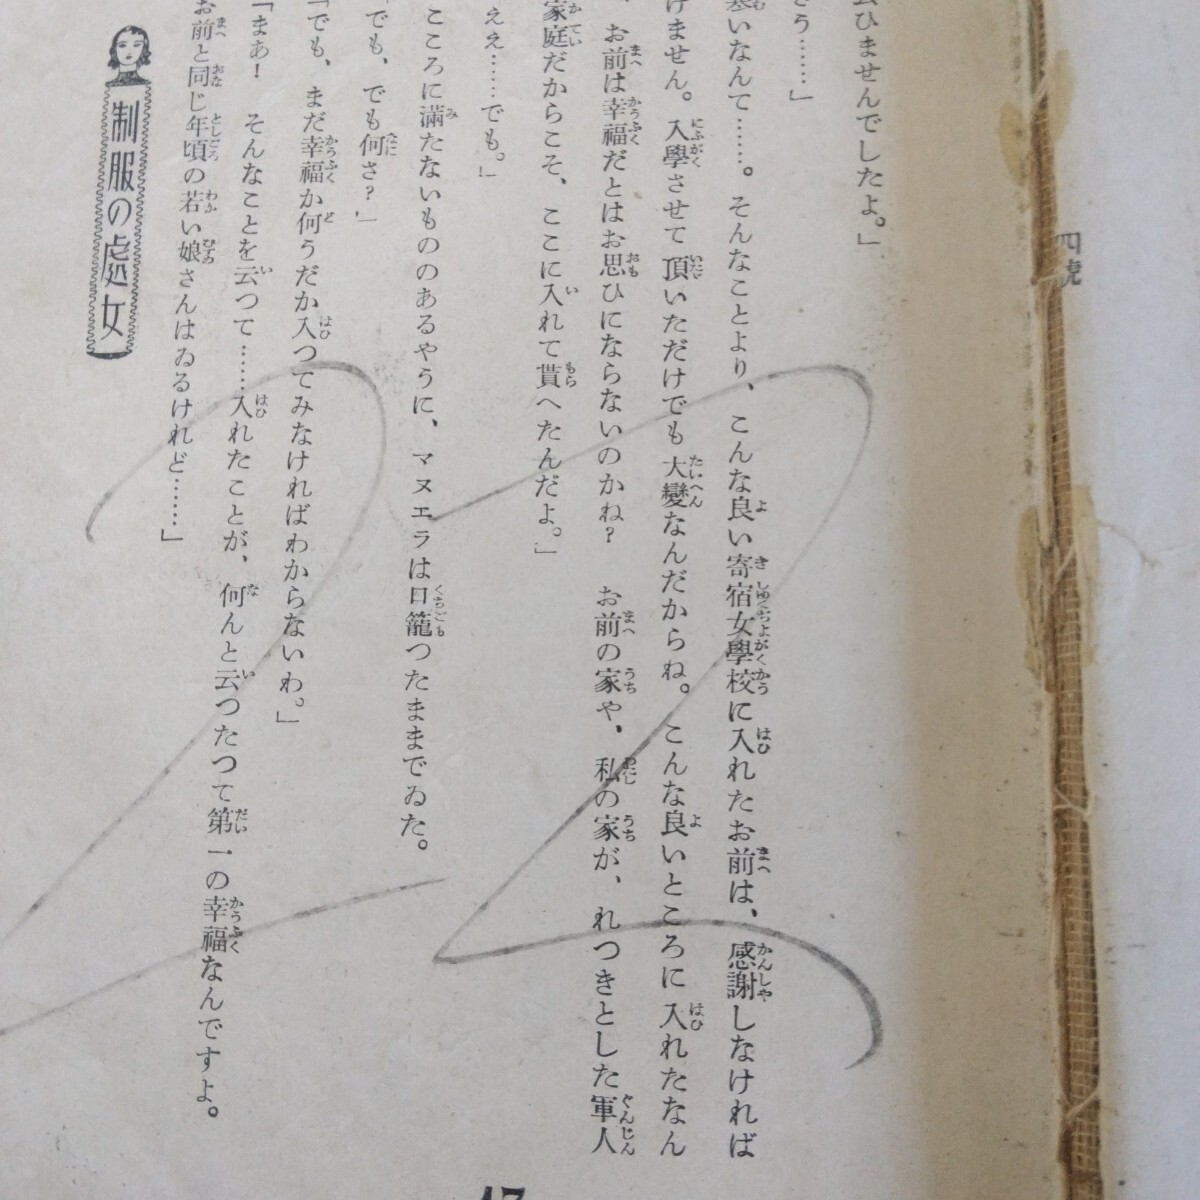 四號
ひませんでしたよ。」
う……」
いなんて……。そんなことより、こんな良い寄宿女學校に入れたお前は、感謝しなければ
けません。入學させて頂いただけでも大變なんだからね。こんな良いところに入れたなん
、お前は幸福だとはお思ひにならないのかね？　お前の家や、私の家が、れつきとした軍人
家庭だからこそ、ここに入れて貰へたんだよ。」
ええ……でも。」
こころに滿たないもののあるやうに、マヌエラは口籠つたままでゐた。
でも、でも何さ？」
「でも、まだ幸福か何うだか入つてみなければわからないわ。」
「まあ！　そんなことを云つて……入れたことが、何んと云つたつて第一の幸福なんですよ。
お前と同じ年頃の若い娘さんはゐるけれど……」
制服の處女